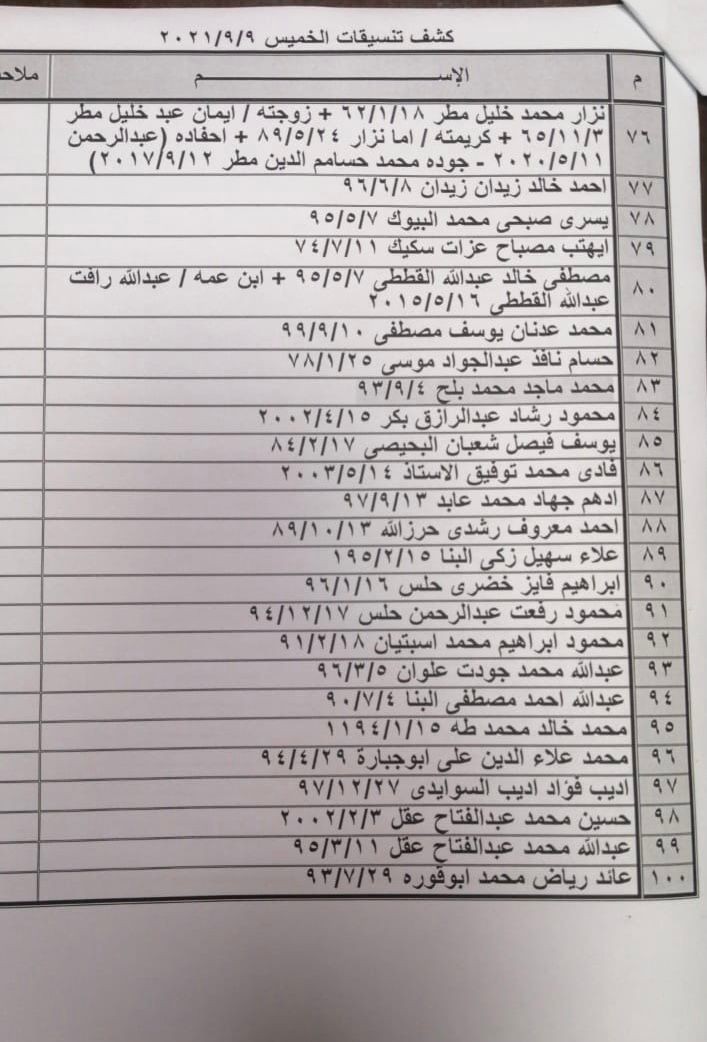 كشف تنسيقات الخميس ٢٠٢١/٩/٩
م الإســـــــــم ملاحـ
٧٦ نزار محمد خليل مطر ٦٢/١/١٨ + زوجته / ايمان عبد خليل مطر
٦٥/١١/٣ + كريمته / اما نزار ٨٩/٥/٢٤ + احفاده (عبدالرحمن
٢٠٢٠/٥/١١ - جوده محمد حسامم الدين مطر ٢٠١٧/٩/١٢)
٧٧ احمد خالد زيدان زيدان ٩٦/٦/٨
٧٨ يسرى صبحى محمد البيوك ٩٥/٥/٧
٧٩ ايهتب مصباح عزات سكيك ٧٤/٧/١١
٨٠ مصطفى خالد عبدالله القططى ٩٥/٥/٧ + ابن عمه / عبدالله رافت
عبدالله القططى ٢٠١٥/٥/١٦
٨١ محمد عدنان يوسف مصطفى ٩٩/٩/١٠
٨٢ حسام نافذ عبدالجواد موسى ٧٨/١/٢٥
٨٣ محمد ماجد محمد بلح ٩٣/٩/٤
٨٤ محمود رشاد عبدالرازق بكر ٢٠٠٢/٤/١٥
٨٥ يوسف فيصل شعبان البحيصى ٨٤/٢/١٧
٨٦ فادى محمد توفيق الاستاذ ٢٠٠٣/٥/١٤
٨٧ ادهم جهاد محمد عابد ٩٧/٩/١٣
٨٨ احمد معروف رشدى حرزالله ٨٩/١٠/١٣
٨٩ علاء سهيل زكى البنا ١٩٥/٢/١٥
٩٠ ابراهيم فايز خضرى حلس ٩٦/١/١٦
٩١ محمود رفعت عبدالرحمن حلس ٩٤/١٢/١٧
٩٢ محمود ابراهيم محمد اسبتيان ٩١/٢/١٨
٩٣ عبدالله محمد جودت علوان ٩٦/٣/٥
٩٤ عبدالله احمد مصطفى البنا ٩٠/٧/٤
٩٥ محمد خالد محمد طه ١١٩٤/١/١٥
٩٦ محمد علاء الدين على ابوجبارة ٩٤/٤/٢٩
٩٧ اديب فؤاد اديب السوايدى ٩٧/١٢/٢٧
٩٨ حسين محمد عبدالفتاح عقل ٢٠٠٢/٢/٣
٩٩ عبدالله محمد عبدالفتاح عقل ٩٥/٣/١١
١٠٠ عائد رياض محمد ابوقوره ٩٣/٧/٢٩